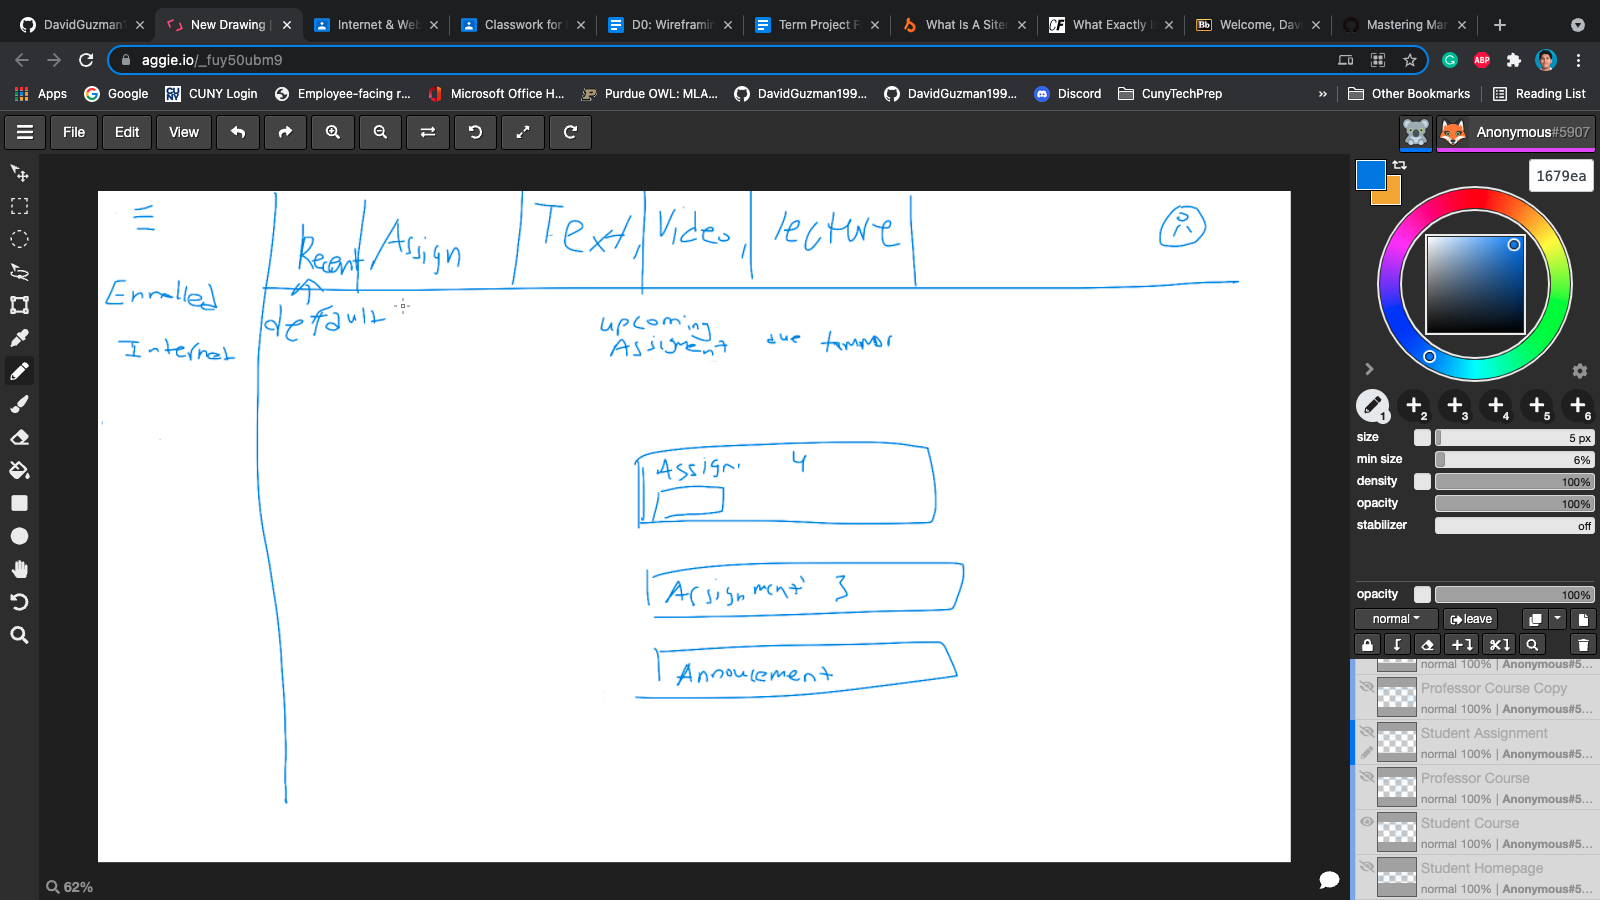 DavidGuzman1
New Drawing |
Internet & Web
Classwork for
D0: Wireframin
Term Project F
What Is A Site
What Exactly I
Welcome, Dav
Mastering Mar
aggie.io/_fuy50ubm9
Apps
Google
CUNY Login
Employee-facing r...
Microsoft Office H...
Purdue OWL: MLA...
DavidGuzman199...
DavidGuzman199...
Discord
CunyTechPrep
»
Other Bookmarks
Reading List
File
Edit
View
Anonymous#5907
1679ea
Recent
Assign
Text,
Video,
lecture
Enrolled
default
Internet
upcoming
Assigment due tommor
Assign. 4
Assignment 3
Annoucement
1
2
3
4
5
6
size
5 px
min size
6%
density
100%
opacity
100%
stabilizer
off
opacity
100%
normal
leave
normal 100% | Anonymous#5...
Professor Course Copy
normal 100% | Anonymous#5...
Student Assignment
normal 100% | Anonymous#5...
Professor Course
normal 100% | Anonymous#5...
Student Course
normal 100% | Anonymous#5...
Student Homepage
normal 100% | Anonymous#5...
62%